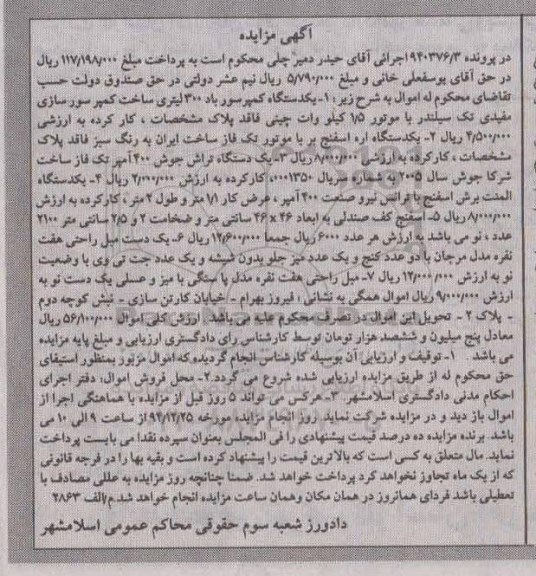 آگهی مزایده
در پرونده ۹۴۰۳۷۶/۳ اجرائی آقای حیدر دمیر چلی محکوم است به پرداخت مبلغ ۱۱۷/۱۹۸/۰۰۰ ریال
در حق آقای یوسفعلی خانی و مبلغ ۵/۷۹۰/۰۰۰ ریال نیم عشر دولتی در حق صندوق دولت حسب
تقاضای محکوم له اموال به شرح زیر: ۱- یکدستگاه کمپرسور باد ۳۰۰ لیتری ساخت کمپر سور سازی
مفیدی تک سیلندر با موتور ۱/۵ کیلو وات چینی فاقد پلاک مشخصات ، کار کرده به ارزشی
۴/۵۰۰/۰۰۰ ریال ۲- یکدستگاه اره اسفنج بر با موتور تک فاز ساخت ایران به رنگ سبز فاقد پلاک
مشخصات ، کارکرده به ارزشی ۸/۰۰۰/۰۰۰ ریال ۳- یک دستگاه تراش جوش ۴۰۰ آمپر تک فاز ساخت
شرکا جوش سال ۲۰۰۵ به شماره سریال ۰۰۰۱۳۵۰ کارکرده به ارزش ۲/۰۰۰/۰۰۰ ریال ۴- یکدستگاه
المنت برش اسفنج با ترانس نیرو صنعت ۴۰۰ آمپر ، عرض کار ۱/۱ متر و طول ۲ متر ، کارکرده به ارزش
۸/۰۰۰/۰۰۰ ریال ۵- اسفنج کف صندلی به ابعاد ۴۶ × ۴۶ سانتی متر و ضخامت ۲ و ۲/۵ سانتی متر ۲۱۰۰
عدد ، نو می باشد به ارزش هر عدد ۶۰۰۰ ریال جمعا ۱۲/۶۰۰/۰۰۰ ریال ۶- یک دست مبل راحتی هفت
نفره مدل مرجان با دو عدد کنج و یک عدد میز جلو بدون شیشه و یک عدد جت تی وی با وضعیت
نو به ارزش ۱۲/۰۰۰/۰۰۰ ریال ۷- مبل راحتی هفت نفره مدل پا سنگی با میز و عسلی یک دست نو به
ارزش ۹/۰۰۰/۰۰۰ ریال اموال همگی به نشانی : فیروز بهرام - خیابان کارتن سازی - نبش کوچه دوم
- پلاک ۲ - تحویل این اموال در تصرف محکوم علیه می باشد . ارزش کلی اموال ۵۶/۱۰۰/۰۰۰ ریال
معادل پنج میلیون و ششصد هزار تومان توسط کارشناس رای دادگستری ارزیابی و مبلغ پایه مزایده
می باشد . ۱- توقیف و ارزیابی آن بوسیله کارشناس انجام گردیده که اموال مزبور بمنظور استیفای
حق محکوم له از طریق مزایده ارزیابی شده شروع می گردد.۲- محل فروش اموال: دفتر اجرای
احکام مدنی دادگستری اسلامشهر ۳- هرکس می تواند ۵ روز قبل از مزایده با هماهنگی اجرا از
اموال باز دید و در مزایده شرکت نماید. روز انجام مزایده مورخه ۹۴/۱۲/۲۵ از ساعت ۹ الی ۱۰ می
باشد. برنده مزایده ده درصد قیمت پیشنهادی را فی المجلس بعنوان سپرده نقدا می بایست پرداخت
نماید. مال متعلق به کسی است که بالاترین قیمت را پیشنهاد کرده است و بقیه بها را در فرجه قانونی
که از یک ماه تجاوز نخواهد کرد پرداخت خواهد شد. ضمنا چنانچه روز مزایده به عللی مصادف با
تعطیلی باشد فردای همانروز در همان مکان وهمان ساعت مزایده انجام خواهد شد.م/الف ۲۸۶۳
دادورز شعبه سوم حقوقی محاکم عمومی اسلامشهر